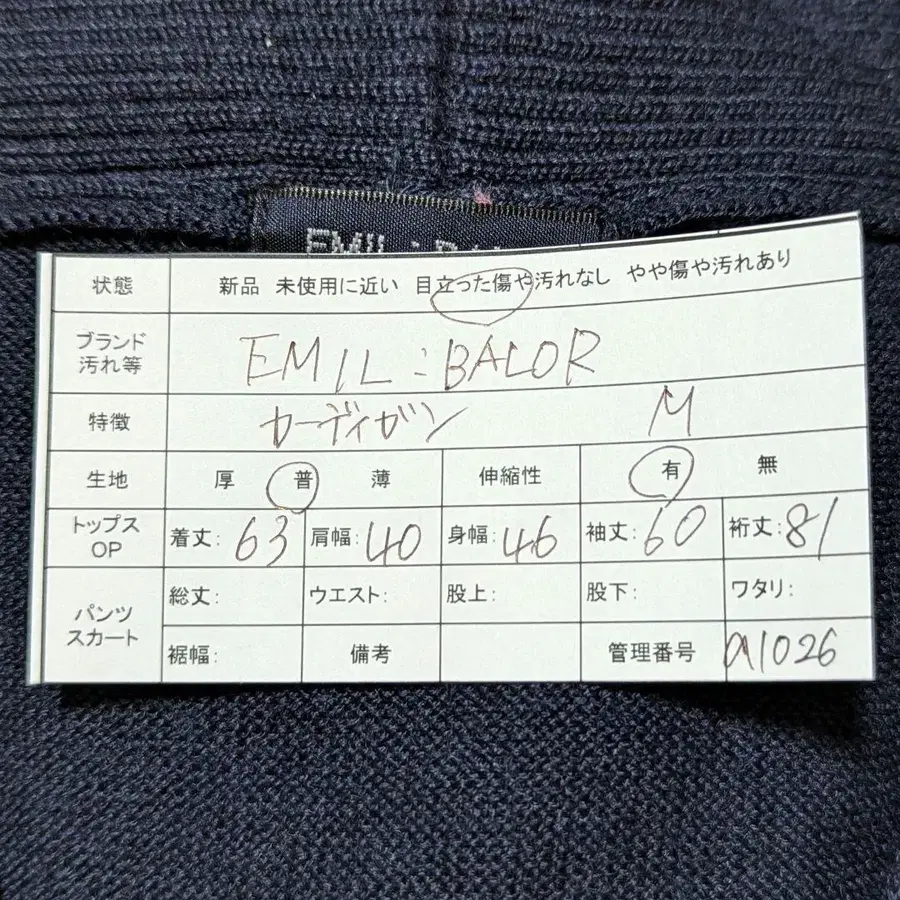 EMIL : BA
状態 新品 未使用に近い 目立った傷や汚れなし やや傷や汚れあり
ブランド
汚れ等 EMIL:BALOR
特徴 カーディガン M
生地 厚 普 薄 伸縮性 有 無
トップス
OP 着丈:63 肩幅:40 身幅:46 袖丈:60 裄丈:81
パンツ
スカート 総丈: ウエスト: 股上: 股下: ワタリ:
裾幅: 備考 管理番号 a1026